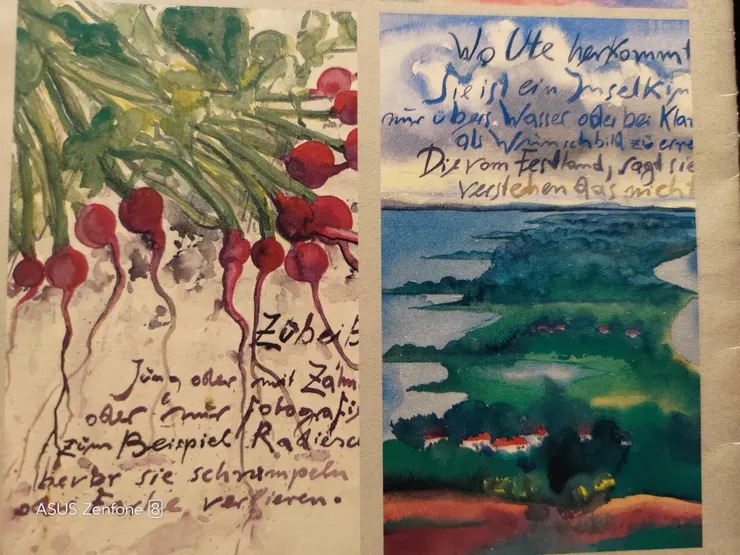 Zubeiß
Jung oder mit Zähn
oder nur fotografis
zum Beispiel Radiesc
bevor sie schrumpeln
oder Farbe verlieren.
Wo Ute herkommt
Sie ist ein Inselkin
nur übers Wasser oder bei Klar
als Wunschbild zu erre
Die vom Festland, sagt sie
verstehen das nicht
ASUS Zenfone 8